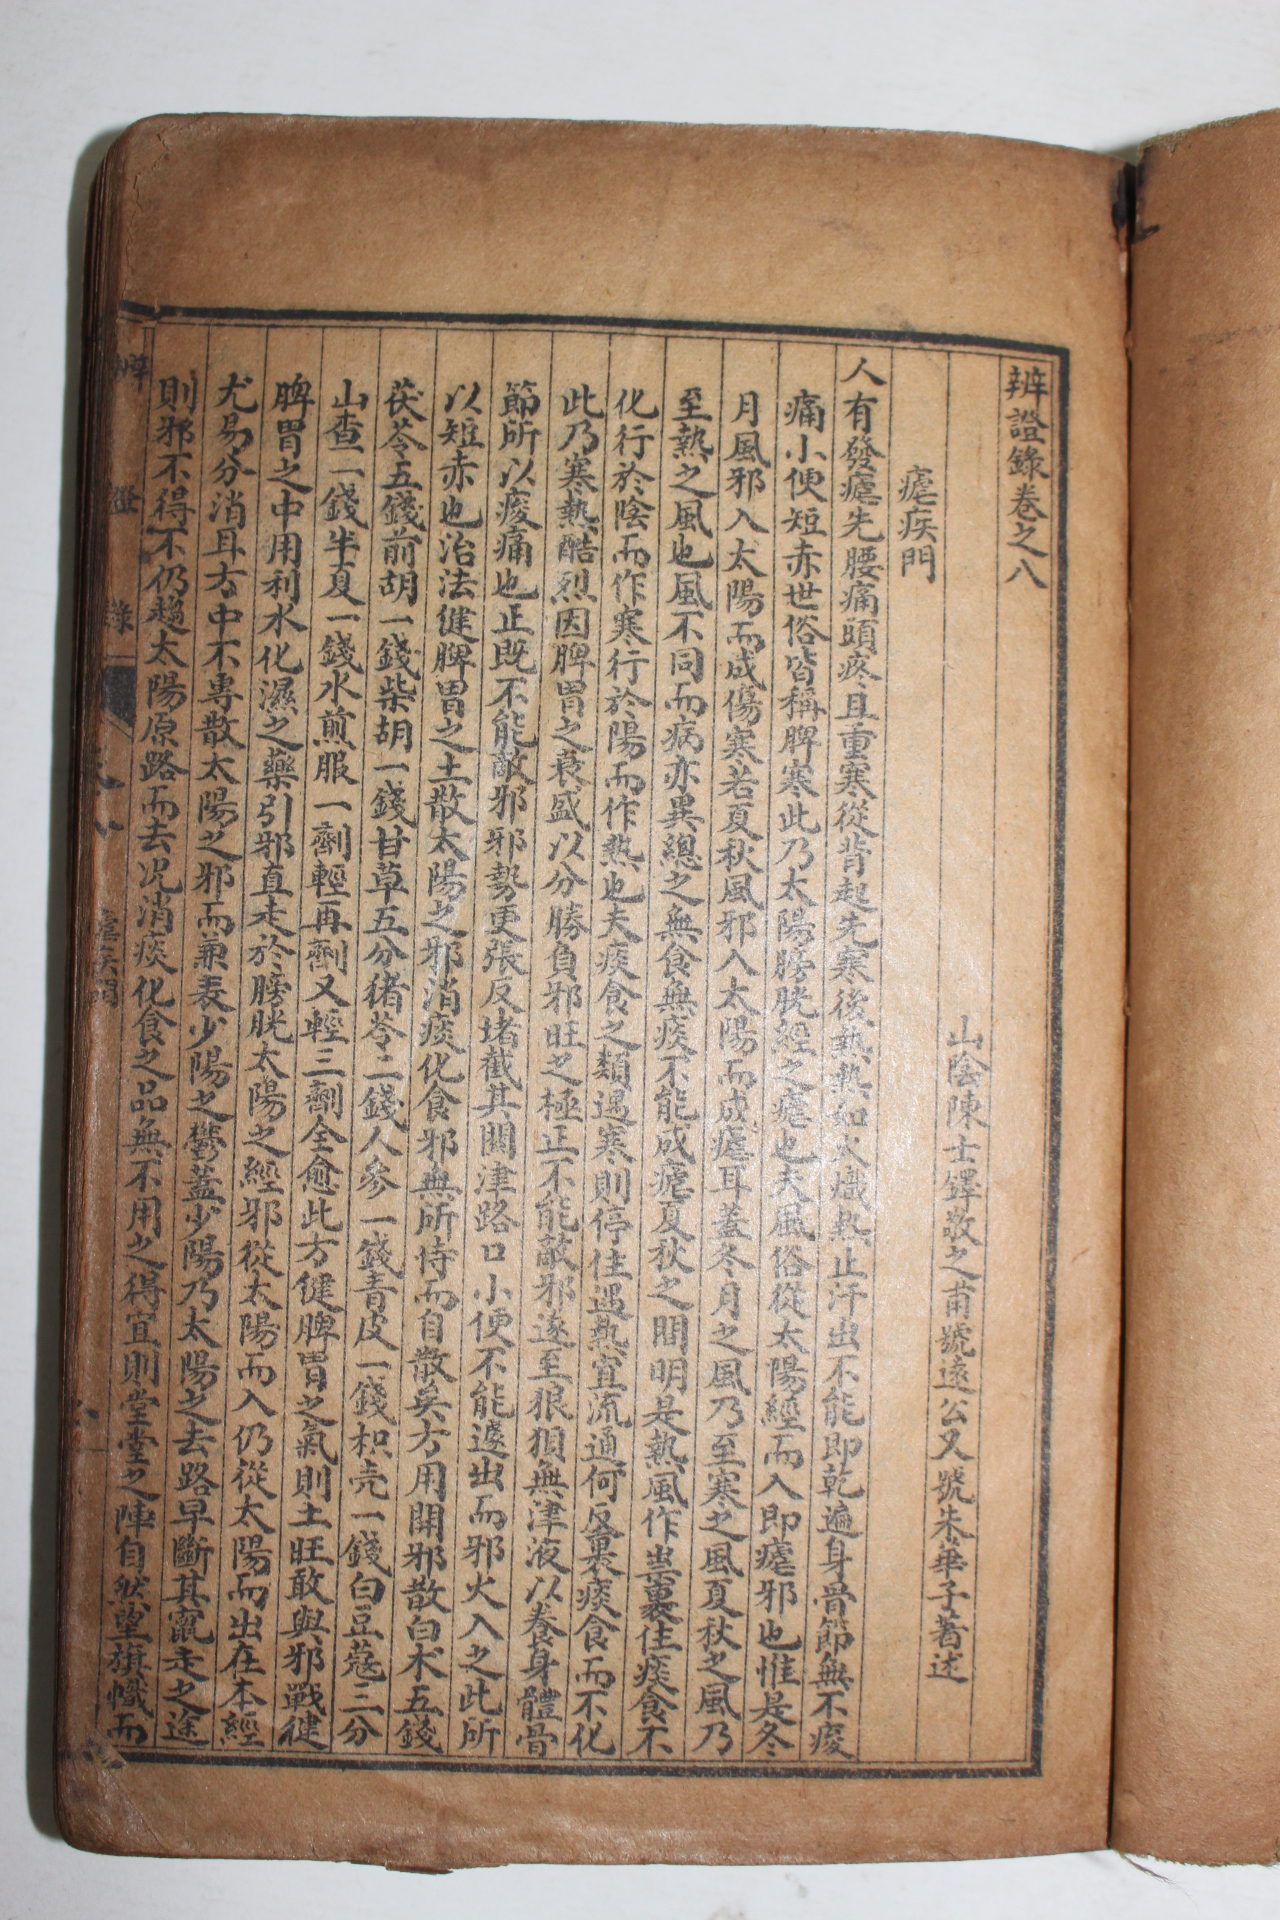 辨證錄卷之八
山陰陳士鐸敬之甫號遠公又號朱華子著述
瘧疾門
人有發瘧先腰痛頭疼且重寒從背起先寒後熱熱如火熾熱止汗出不能即乾遍身骨節無不痠
痛小便短赤世俗皆稱脾寒此乃太陽膀胱經之瘧也夫風俗從太陽經而入即瘧邪也惟是冬
月風邪入太陽而成傷寒若夏秋風邪入太陽而成瘧耳蓋冬月之風乃至寒之風夏秋之風乃
至熱之風也風不同而病亦異總之無食無痰不能成瘧夏秋之間明是熱風作祟裹住痰食不
化行於陰而作寒行於陽而作熱也夫痰食之類遇寒則停住遇熱宜流通何反裹痰食而不化
此乃寒熱酷烈因脾胃之衰盛以分勝負邪旺之極正不能敵邪遂至狼狽無津液以養身體骨
節所以痠痛也正既不能敵邪邪勢更張反堵截其關津路口小便不能遽出而邪火入之此所
以短赤也治法健脾胃之土散太陽之邪消痰化食邪無所恃而自散矣方用開邪散白朮五錢
茯苓五錢前胡一錢柴胡一錢甘草五分猪苓二錢人參一錢青皮一錢枳壳一錢白豆蔻三分
山查一錢半夏一錢水煎服一劑輕再劑又輕三劑全愈此方健脾胃之氣則土旺敢與邪戰健
脾胃之中用利水化濕之藥引邪直走於膀胱太陽之經邪從太陽而入仍從太陽而出在本經
尤易分消耳方中不專散太陽之邪而兼表少陽之鬱蓋少陽乃太陽之去路早斷其竄走之途
則邪不得不仍趨太陽原路而去况消痰化食之品無不用之得宜則堂堂之陣自然望旗幟而
辨證錄
瘧疾門